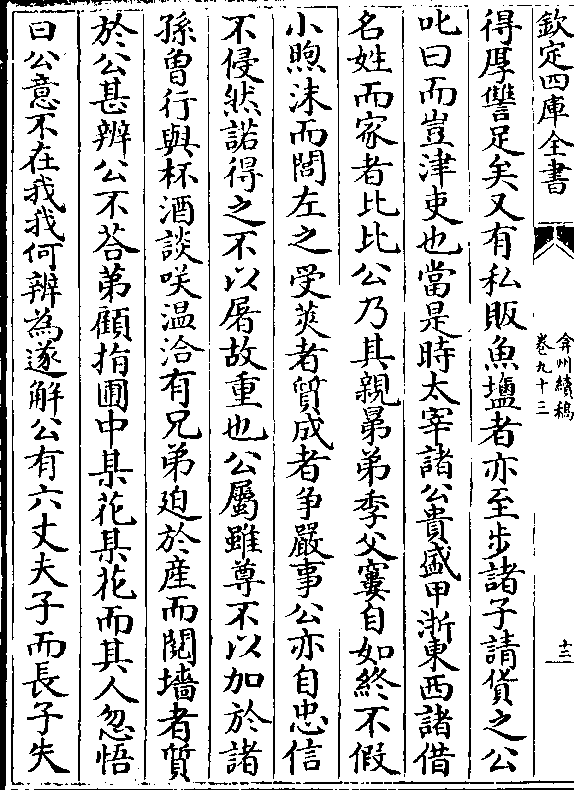 欽定四庫全書
弇州續稿
卷九十三
十三
得厚讐足矣又有私販魚塩者亦至步諸子請貨之公
叱曰而豈津吏也當是時太宰諸公貴盛甲浙東西諸借
名姓而家者比比公乃其親昜弟季父窶自如終不假
小煦沫而閭左之受莢者質成者争嚴事公亦自忠信
不侵然諾得之不以屠故重也公屬雖尊不以加於諸
孫曾行與杯酒談咲温洽有兄弟迫於産而鬩墻者質
於公甚辨公不荅第顧指圃中某花某花而其人忽悟
曰公意不在我我何辨為遂解公有六丈夫子而長子失